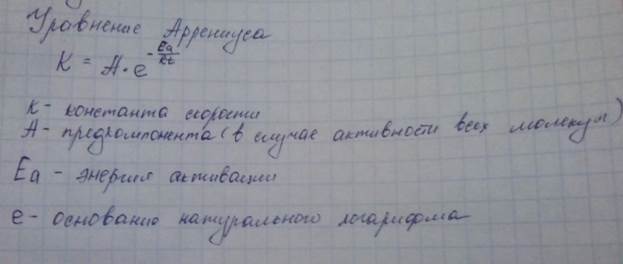 Уравнение Аррениуса
K = A·e^-Ea/Rt
K - константа скорости
A - предкомпонента (в случае активности всех молекул)
Ea - энергия активации
e - основание натурального логарифма